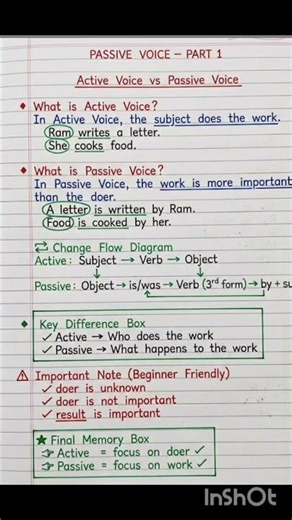 PASSIVE VOICE – PART 1
Active Voice vs Passive Voice
♦ What is Active Voice?
In Active Voice, the subject does the work.
Ram writes a letter.
She cooks food.
♦ What is Passive Voice?
In Passive Voice, the work is more important
than the doer.
A letter is written by Ram.
Food is cooked by her.
⇄ Change Flow Diagram
Active: Subject → Verb → Object
↓ ↓
Passive: Object → is/was → Verb (3rd form) → by + su
♦ Key Difference Box
✓ Active → Who does the work
✓ Passive → What happens to the work
⚠ Important Note (Beginner Friendly)
✓ doer is unknown
✓ doer is not important
✓ result is important
★ Final Memory Box
👉 Active = focus on doer ✓
👉 Passive = focus on work ✓
InShOt